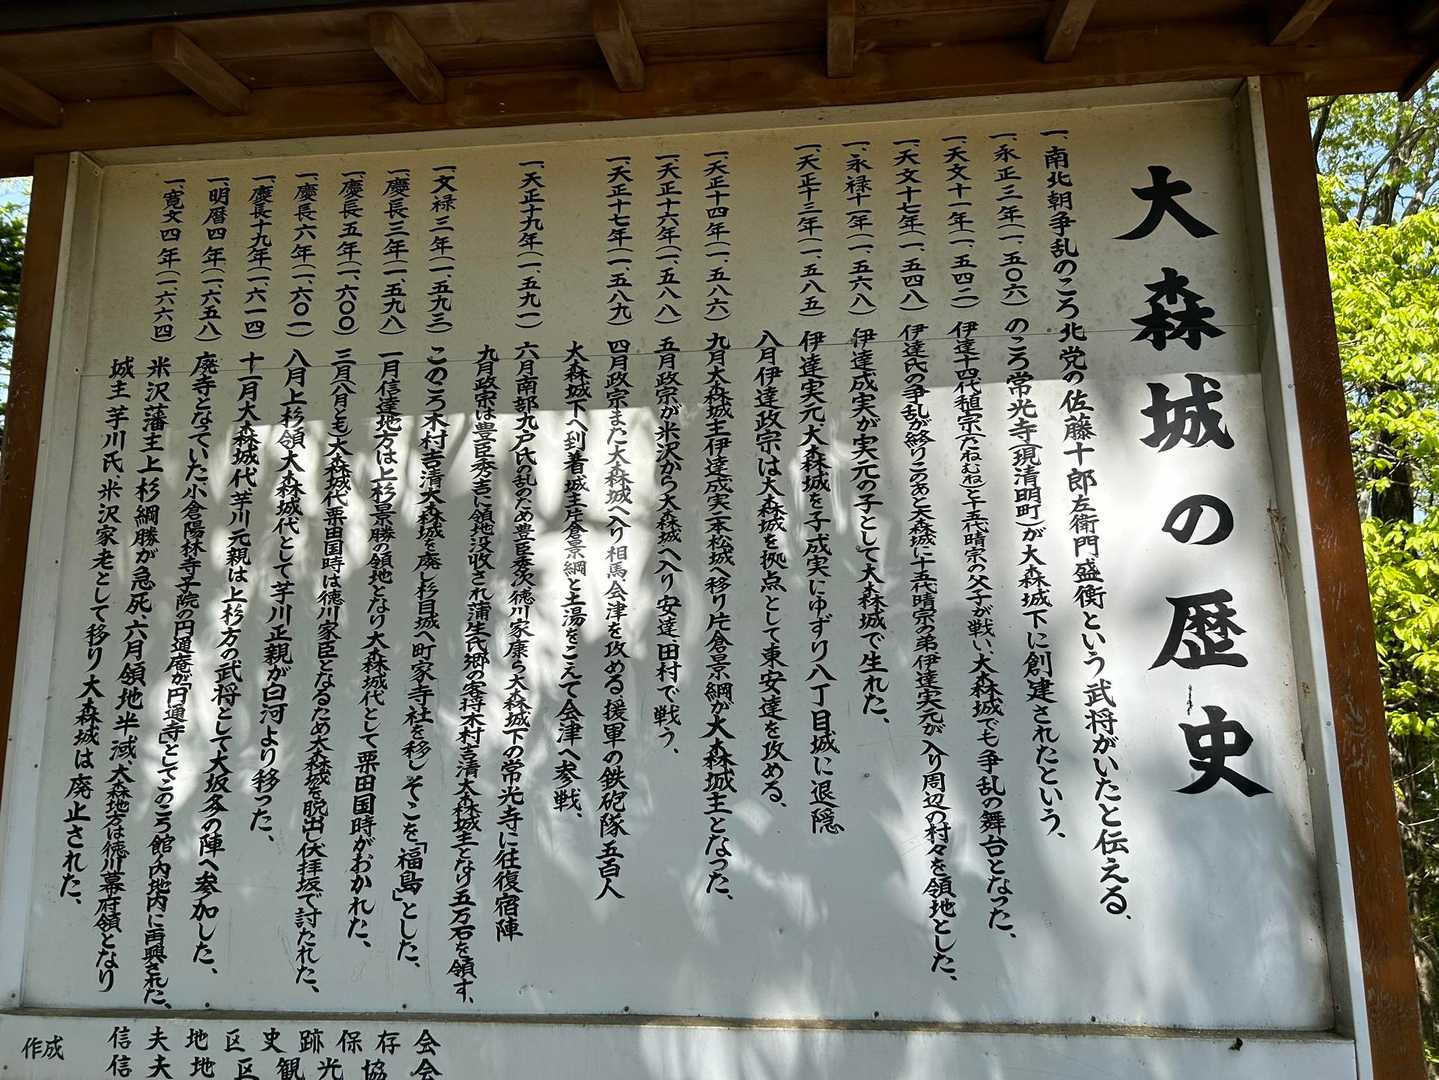 大森城の歴史
一、南北朝争乱のころ北党の佐藤十郎左衛門盛衡という武将がいたと伝える、
一、永正三年(一、五〇六)のころ常光寺(現清明町)が大森城下に創建されたという、
一、天文十一年(一、五四二)伊達十四代稙宗(たねむね)と十五代晴宗の父子が戦い、大森城でも争乱の舞台となった、
一、天文十七年(一、五四八)伊達氏の争乱が終りこのあと大森城に十五代晴宗の弟伊達実元が入り周辺の村々を領地とした、
一、永禄十一年(一、五六八)伊達成実が実元の子として大森城で生れた、
一、天正十三年(一、五八五)伊達実元大森城を子成実にゆずり八丁目城に退隠
八月伊達政宗は大森城を拠点として東安達を攻める、
一、天正十四年(一、五八六)九月大森城主伊達成実二本松城へ移り片倉景綱が大森城主となった、
一、天正十六年(一、五八八)五月政宗が米沢から大森城へ入り安達田村で戦う、
一、天正十七年(一、五八九)四月政宗また大森城へ入り相馬会津を攻める援軍の鉄砲隊五百人
大森城下へ到着城主片倉景綱と土湯をこえて会津へ参戦、
一、天正十九年(一、五九一)六月南部九戸氏の乱のため豊臣秀次徳川家康ら大森城下の常光寺に往復宿陣
九月政宗は豊臣秀吉に領地没収され蒲生氏郷の客将木村吉清大森城主となり五万石を領す、
一、文禄三年(一、五九三)このころ木村吉清大森城を廃し杉目城へ町家寺社を移しそこを「福島」とした、
一、慶長三年(一五九八)一月信達地方は上杉景勝の領地となり大森城代として栗田国時がおかれた、
一、慶長五年(一、六〇〇)三月八月とも大森城代栗田国時は徳川家臣となるため大森城を脱出し伏拝坂で討たれた、
一、慶長六年(一、六〇一)八月上杉領大森城代として芋川正親が白河より移った、
一、慶長十九年(一六一四)十一月大森城代芋川元親は上杉方の武将として大坂冬の陣へ参加した、
一、明暦四年(一、六五八)廃寺となていた小倉陽林寺子院の円通庵が「円通寺」としてこのころ館ノ内地内に再興された、
一、寛文四年(一、六六四)米沢藩主上杉綱勝が急死、六月領地半減、大森地方は徳川幕府領となり
城主芋川氏米沢家老として移り大森城は廃止された、
作成
信夫地区史跡保存会
信夫地区観光協会